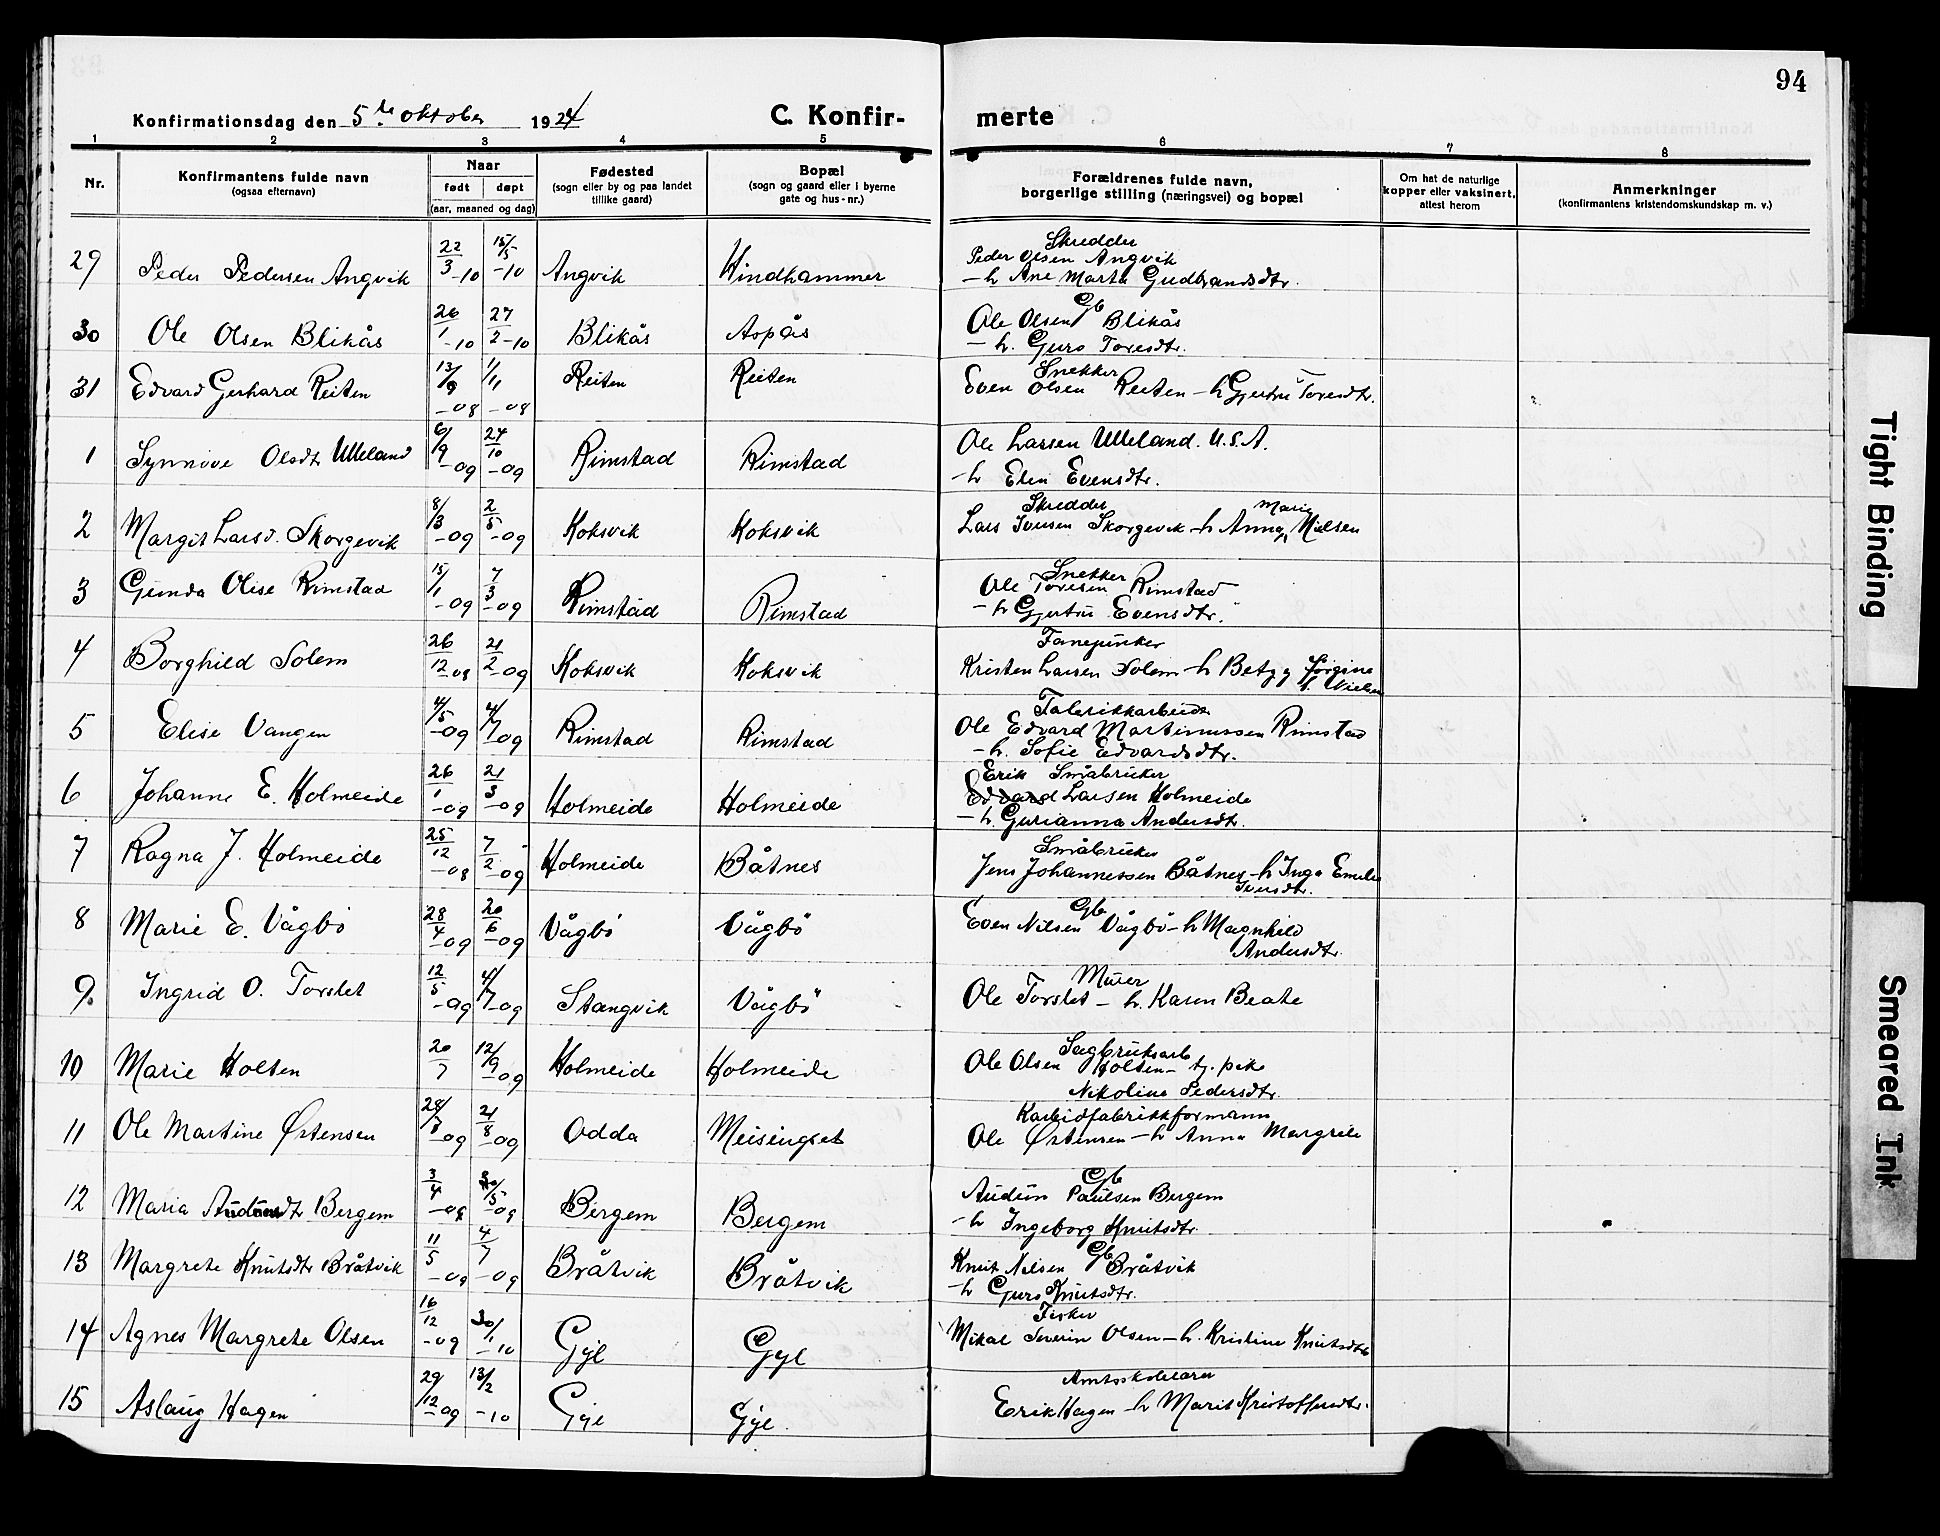 94
Konfirmationsdag den 5te oktober 1924
C. Konfir-
merte
1 2 3 4 5 6 7 8
Nr.
Konfirmantens fulde navn
(ogsaa efternavn)
Naar
født døpt
(aar, maaned og dag)
Fødested
(sogn eller by og paa landet
tillike gaard)
Bopæl
(sogn og gaard eller i byerne
gate og hus-nr.)
Forældrenes fulde navn,
borgerlige stilling (næringsvei) og bopæl
Om hat de naturlige
kopper eller vaksinert,
attest herom
Anmerkninger
(konfirmantens kristendomskundskap m. v.)
29 Peder Pedersen Angvik 22/3-10 15/5-10 Angvik Hindhammer
Skredder
Peder Olsen Angvik
- h Ane Marta Gudbrandsdtr.
30 Ole Olsen Blikås 26/1-10 27/2-10 Blikås Aspås
Gb
Ole Olsen Blikås
- h. Guro Toresdtr.
31 Edvard Gerhard Reiten 13/9-08 1/11-08 Reiten Reiten
Snekker
Even Olsen Reiten - h Gjertru Toresdtr.
1 Synnöve Olsdtr Ulleland 6/9-09 24/10-09 Rimstad Rimstad
Ole Larsen Ulleland. U.S.A.
- h Elen Evensdtr.
2 Margit Larsd. Skorgevik 8/3-09 2/5-09 Koksvik Koksvik
Skredder Marie
Lars Iversen Skorgevik - h Anna Nielsen
3 Gunda Olise Rimstad 15/1-09 7/3-09 Rimstad Rimstad
Snekker
Ole Toresen Rimstad
- h Gjertru Evensdtr.
4 Borghild Solem 26/12-08 21/2-09 Koksvik Koksvik
Fanejunker
Kristen Larsen Solem - h Betzy Jørgine
f. Nielsen
5 Elise Vangen 4/5-09 4/7-09 Rimstad Rimstad
Fabrikkarbeider
Ole Edvard Martinussen Rimstad
- h. Sofie Edvardsdtr.
6 Johanne E. Holmeide 26/1-09 21/3-09 Holmeide Holmeide
Erik Småbruker
Edvard Larsen Holmeide
- h. Gurianna Andersdtr.
7 Ragna J. Holmeide 25/12-08 7/2-09 Holmeide Båtnes
Småbruker
Jens Johannessen Båtnes - h Inga Emelie
Iversdtr.
8 Marie E. Vågbö 28/4-09 20/6-09 Vågbö Vågbö
Gb
Even Nilsen Vågbö - h Magnhild
Andersdtr.
9. Ingrid O. Torslet 12/5-09 4/7-09 Stangvik Vågbö
Murer
Ole Torslet - h. Karen Beate
10 Marie Holten 20/7 12/9-09 Holmeide Holmeide
Sagbruksarb
Ole Olsen Holten - tj. pike
Nikoline Pedersdtr.
11 Ole Martine Ørtensen 28/7-09 21/8-09 Odda Meisingset
Karbidfabrikkformann
Ole Ørtensen - h Anna Margrete
12 Maria Audunsdtr Bergem 3/4-09 30/5-09 Bergem Bergem
Gb
Audun Paulsen Bergem
- h Ingeborg Knutsdtr.
13 Margrete Knutsdtr Bråtvik 11/5-09 4/7-09 Bråtvik Bråtvik
Gb
Knut Nilsen Bråtvik
- h Guro Knutsdtr.
14 Agnes Margrete Olsen 16/12-09 30/1-10 Gyl Gyl
Fisker
Mikal Severin Olsen - h. Kristine Knutsdtr
15 Aslaug Hagen 29/12-09 13/2-10 Gyl Gyl.
Amtsskolelærer
Erik Hagen - h Marit Kristoffersdtr.
Tight Binding
Smeared Ink